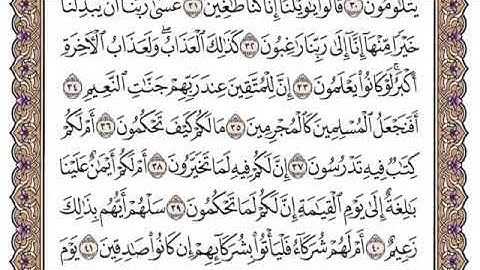 يَتَلَٰوَمُونَ ٣٠ قَالُوا۟ يَٰوَيْلَنَآ إِنَّا كُنَّا طَٰغِينَ ٣١ عَسَىٰ رَبُّنَآ أَن يُبْدِلَنَا
خَيْرًا مِّنْهَآ إِنَّآ إِلَىٰ رَبِّنَا رَٰغِبُونَ ٣٢ كَذَٰلِكَ ٱلْعَذَابُ ۖ وَلَعَذَابُ ٱلْءَاخِرَةِ
أَكْبَرُ ۚ لَوْ كَانُوا۟ يَعْلَمُونَ ٣٣ إِنَّ لِلْمُتَّقِينَ عِندَ رَبِّهِمْ جَنَّٰتِ ٱلنَّعِيمِ ٣٤
أَفَنَجْعَلُ ٱلْمُسْلِمِينَ كَٱلْمُجْرِمِينَ ٣٥ مَا لَكُمْ كَيْفَ تَحْكُمُونَ ٣٦ أَمْ لَكُمْ
كِتَٰبٌ فِيهِ تَدْرُسُونَ ٣٧ إِنَّ لَكُمْ فِيهِ لَمَا تَخَيَّرُونَ ٣٨ أَمْ لَكُمْ أَيْمَٰنٌ عَلَيْنَا
بَٰلِغَةٌ إِلَىٰ يَوْمِ ٱلْقِيَٰمَةِ ۙ إِنَّ لَكُمْ لَمَا تَحْكُمُونَ ٣٩ سَلْهُمْ أَيُّهُم بِذَٰلِكَ
زَعِيمٌ ٤٠ أَمْ لَهُمْ شُرَكَآءُ فَلْيَأْتُوا۟ بِشُرَكَآئِهِمْ إِن كَانُوا۟ صَٰدِقِينَ ٤١ يَوْمَ